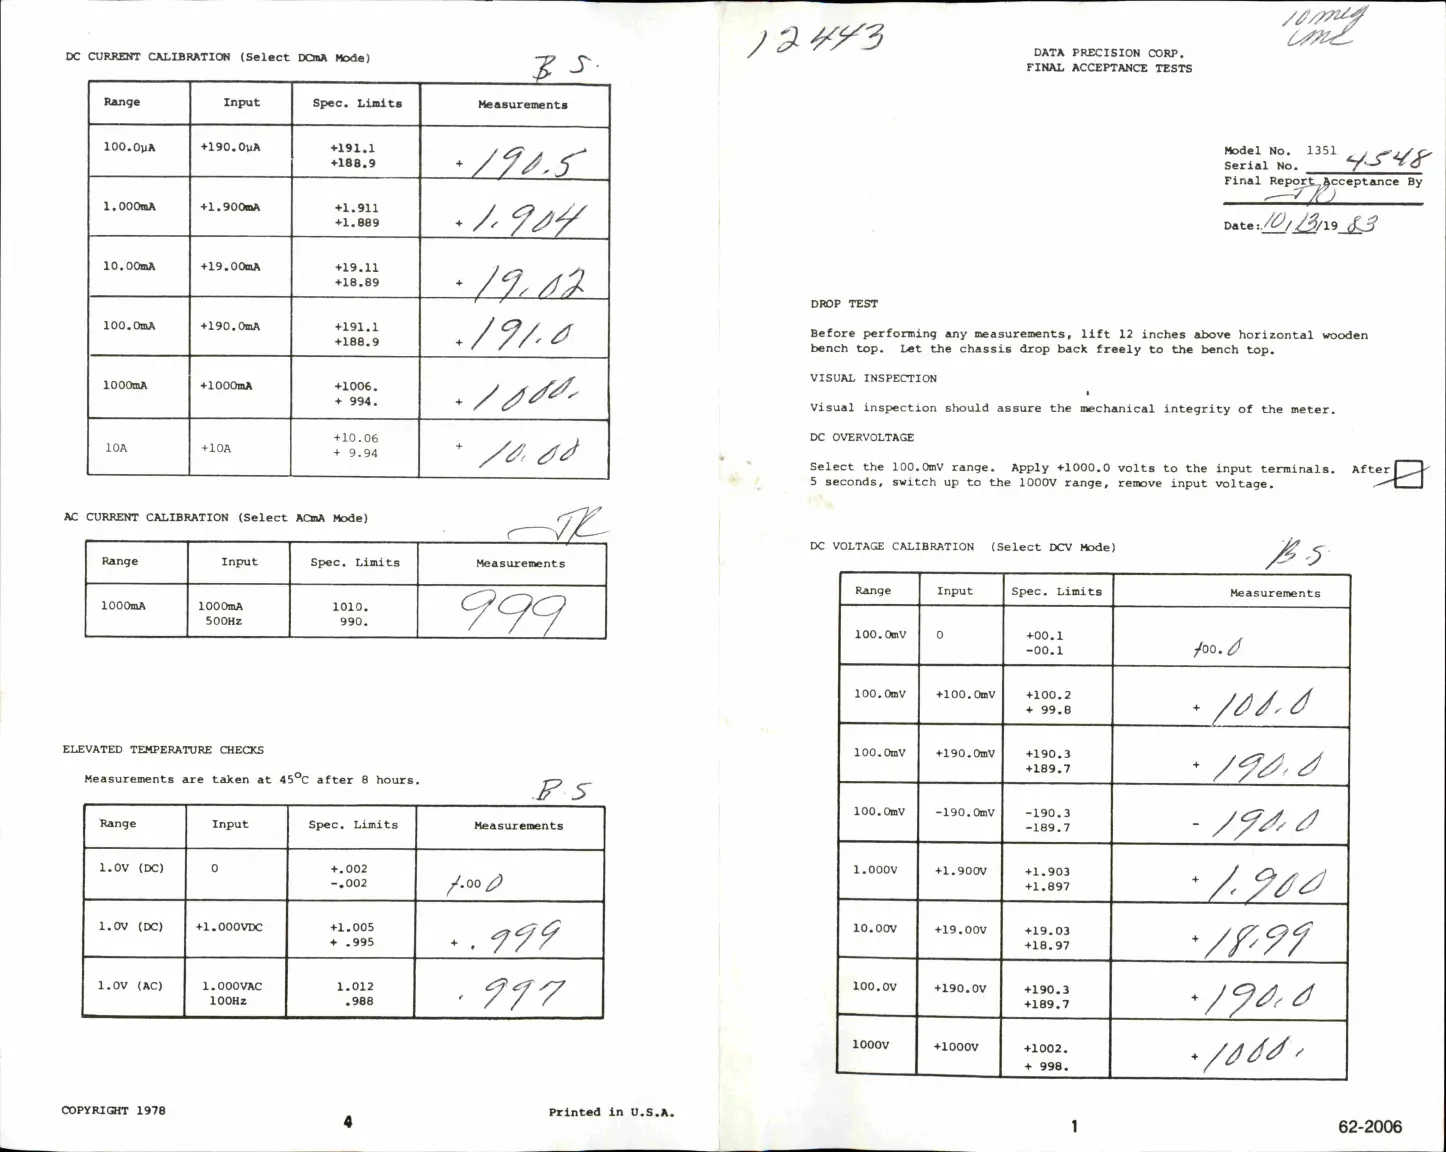 DC CURRENT CALIBRATION (Select DCmA Mode)
B S.
Range Input Spec. Limits Measurements
100.0µA +190.0µA +191.1 + 190.5
+188.9
1.000mA +1.900mA +1.911 + 1.904
+1.889
10.00mA +19.00mA +19.11 + 19.02
+18.89
100.0mA +190.0mA +191.1 + 191.0
+188.9
1000mA +1000mA +1006. + 1000.
+ 994.
10A +10A +10.06 + 10.00
+ 9.94
AC CURRENT CALIBRATION (Select ACmA Mode)
Range Input Spec. Limits Measurements
1000mA 1000mA 1010. 999
500Hz 990.
ELEVATED TEMPERATURE CHECKS
Measurements are taken at 45°C after 8 hours.
B.S
Range Input Spec. Limits Measurements
1.0V (DC) 0 +.002 +.000
-.002
1.0V (DC) +1.000VDC +1.005 + .999
+ .995
1.0V (AC) 1.000VAC 1.012 .997
100Hz .988
COPYRIGHT 1978
4
Printed in U.S.A.
12443
10 meg
DATA PRECISION CORP.
FINAL ACCEPTANCE TESTS
Model No. 1351
Serial No. 4548
Final Report Acceptance By
Date: 10/13/1983
DROP TEST
Before performing any measurements, lift 12 inches above horizontal wooden
bench top. Let the chassis drop back freely to the bench top.
VISUAL INSPECTION
Visual inspection should assure the mechanical integrity of the meter.
DC OVERVOLTAGE
Select the 100.0mV range. Apply +1000.0 volts to the input terminals. After
5 seconds, switch up to the 1000V range, remove input voltage.
DC VOLTAGE CALIBRATION (Select DCV Mode)
B.S
Range Input Spec. Limits Measurements
100.0mV 0 +00.1 +00.0
-00.1
100.0mV +100.0mV +100.2 + 100.0
+ 99.8
100.0mV +190.0mV +190.3 + 190.0
+189.7
100.0mV -190.0mV -190.3 - 190.0
-189.7
1.000V +1.900V +1.903 + 1.900
+1.897
10.00V +19.00V +19.03 + 18.99
+18.97
100.0V +190.0V +190.3 + 190.0
+189.7
1000V +1000V +1002. + 1000.
+ 998.
1
62-2006